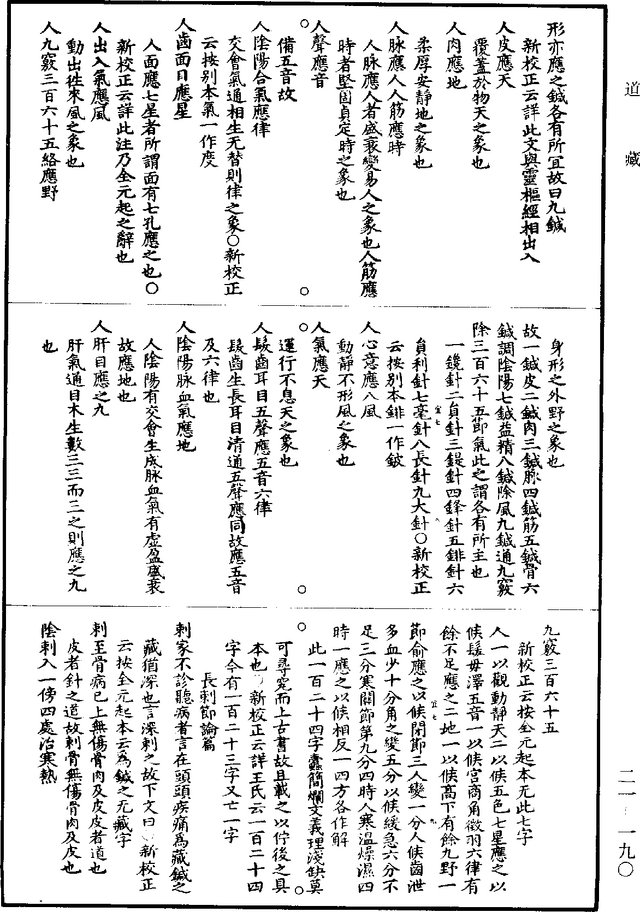 道藏
形亦應之鍼各有所宜故曰九鍼
新校正云詳此文與靈樞經相出入
人皮應天
覆蓋於物天之象也
人肉應地
柔厚安靜地之象也
人脉應人人筋應時
人脉應人者盛衰變易人之象也人筋應
時者堅固貞定時之象也
人聲應音
備五音故
人陰陽合氣應律
交會氣通相生无替則律之象○新校正
云按别本氣一作度
人齒面目應星
人面應七星者所謂面有七孔應之也○
新校正云詳此注乃全元起之辭也
人出入氣應風
動出徃來風之象也
人九竅三百六十五絡應野
身形之外野之象也
故一鍼皮二鍼肉三鍼脉四鍼筋五鍼骨六
鍼調陰陽七鍼益精八鍼除風九鍼通九竅
除三百六十五節氣此之謂各有所主也
一鑱針二員針三鍉針四鋒針五鈹針六
員利針七毫針八長針九大針○新校正
云按别本鈹一作鈹
人心意應八風
動靜不形風之象也
人氣應天
運行不息天之象也
人髮齒耳目五聲應五音六律
髮齒生長耳目清通五聲應同故應五音
及六律也
人陰陽脉血氣應地
人陰陽有交會生成脉血氣有虛盈盛衰
故應地也
人肝目應之九
肝氣通目木生數三三而三之則應之九
也
九竅三百六十五
新校正云按全元起本无此七字
人一以觀動靜天二以候五色七星應之以
候髮毋澤五音一以候宮商角徵羽六律有
餘不足應之二地一以候高下有餘九野一
節俞應之以候閉節三人變一分人候齒泄
多血少十分角之變五分以候緩急六分不
足三分寒關節第九分四時人寒溫燥濕四
時一應之以候相反一四方各作解
此一百二十四字蠹簡爛文義理淺缺莫
可尋究而上古書故且載之以佇後之具
本也○新校正云詳王氏云一百二十四
字今有一百二十三字又亡一字
長刺節論篇
刺家不診聽病者言在頭頭疾痛爲藏鍼之
藏猶深也言深刺之故下文曰○新校正
云按全元起本云爲鍼之无藏字
刺至骨病已上無傷骨肉及皮皮者道也
皮者針之道故刺骨無傷骨肉及皮也
陰刺入一傍四處治寒熱
二一－一九〇